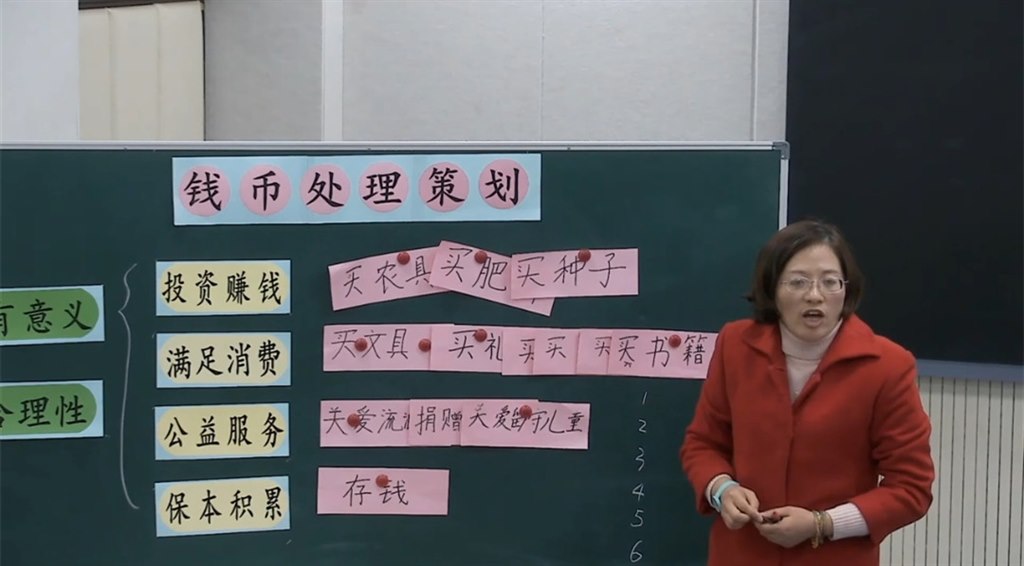 钱币处理策划
投资赚钱
买农具
买肥
买种子
有意义
满足消费
买文具
买礼
买
买
买
买书籍
合理性
公益服务
关爱流
捐赠
关爱留守儿童
保本积累
存钱
1
2
3
4
5
6